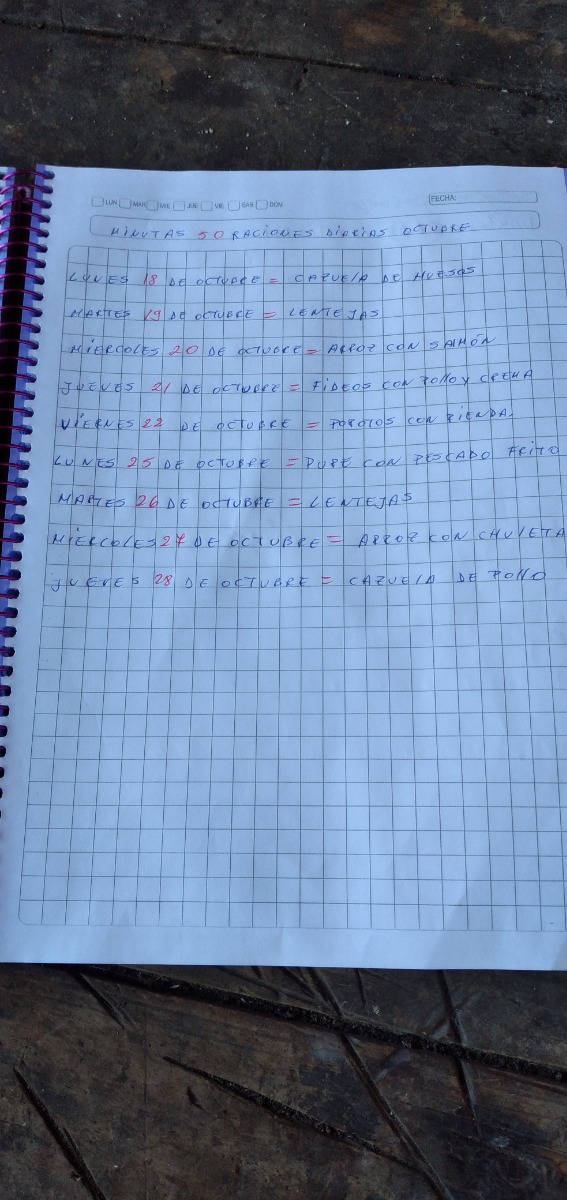 LUN MAR MIE JUE VIE SAB DOM
FECHA:
MINUTAS 50 RACIONES DIARIAS OCTUBRE
LUNES 18 DE OCTUBRE = CAZUELA DE HUESOS
MARTES 19 DE OCTUBRE = LENTEJAS
MIERCOLES 20 DE OCTUBRE = ARROZ CON SALMÓN
JUEVES 21 DE OCTUBRE = FIDEOS CON POLLO Y CREMA
VIERNES 22 DE OCTUBRE = POROTOS CON RIENDA.
LUNES 25 DE OCTUBRE = PURE CON PESCADO FRITO
MARTES 26 DE OCTUBRE = LENTEJAS
MIERCOLES 27 DE OCTUBRE = ARROZ CON CHULETA
JUEVES 28 DE OCTUBRE = CAZUELA DE POLLO